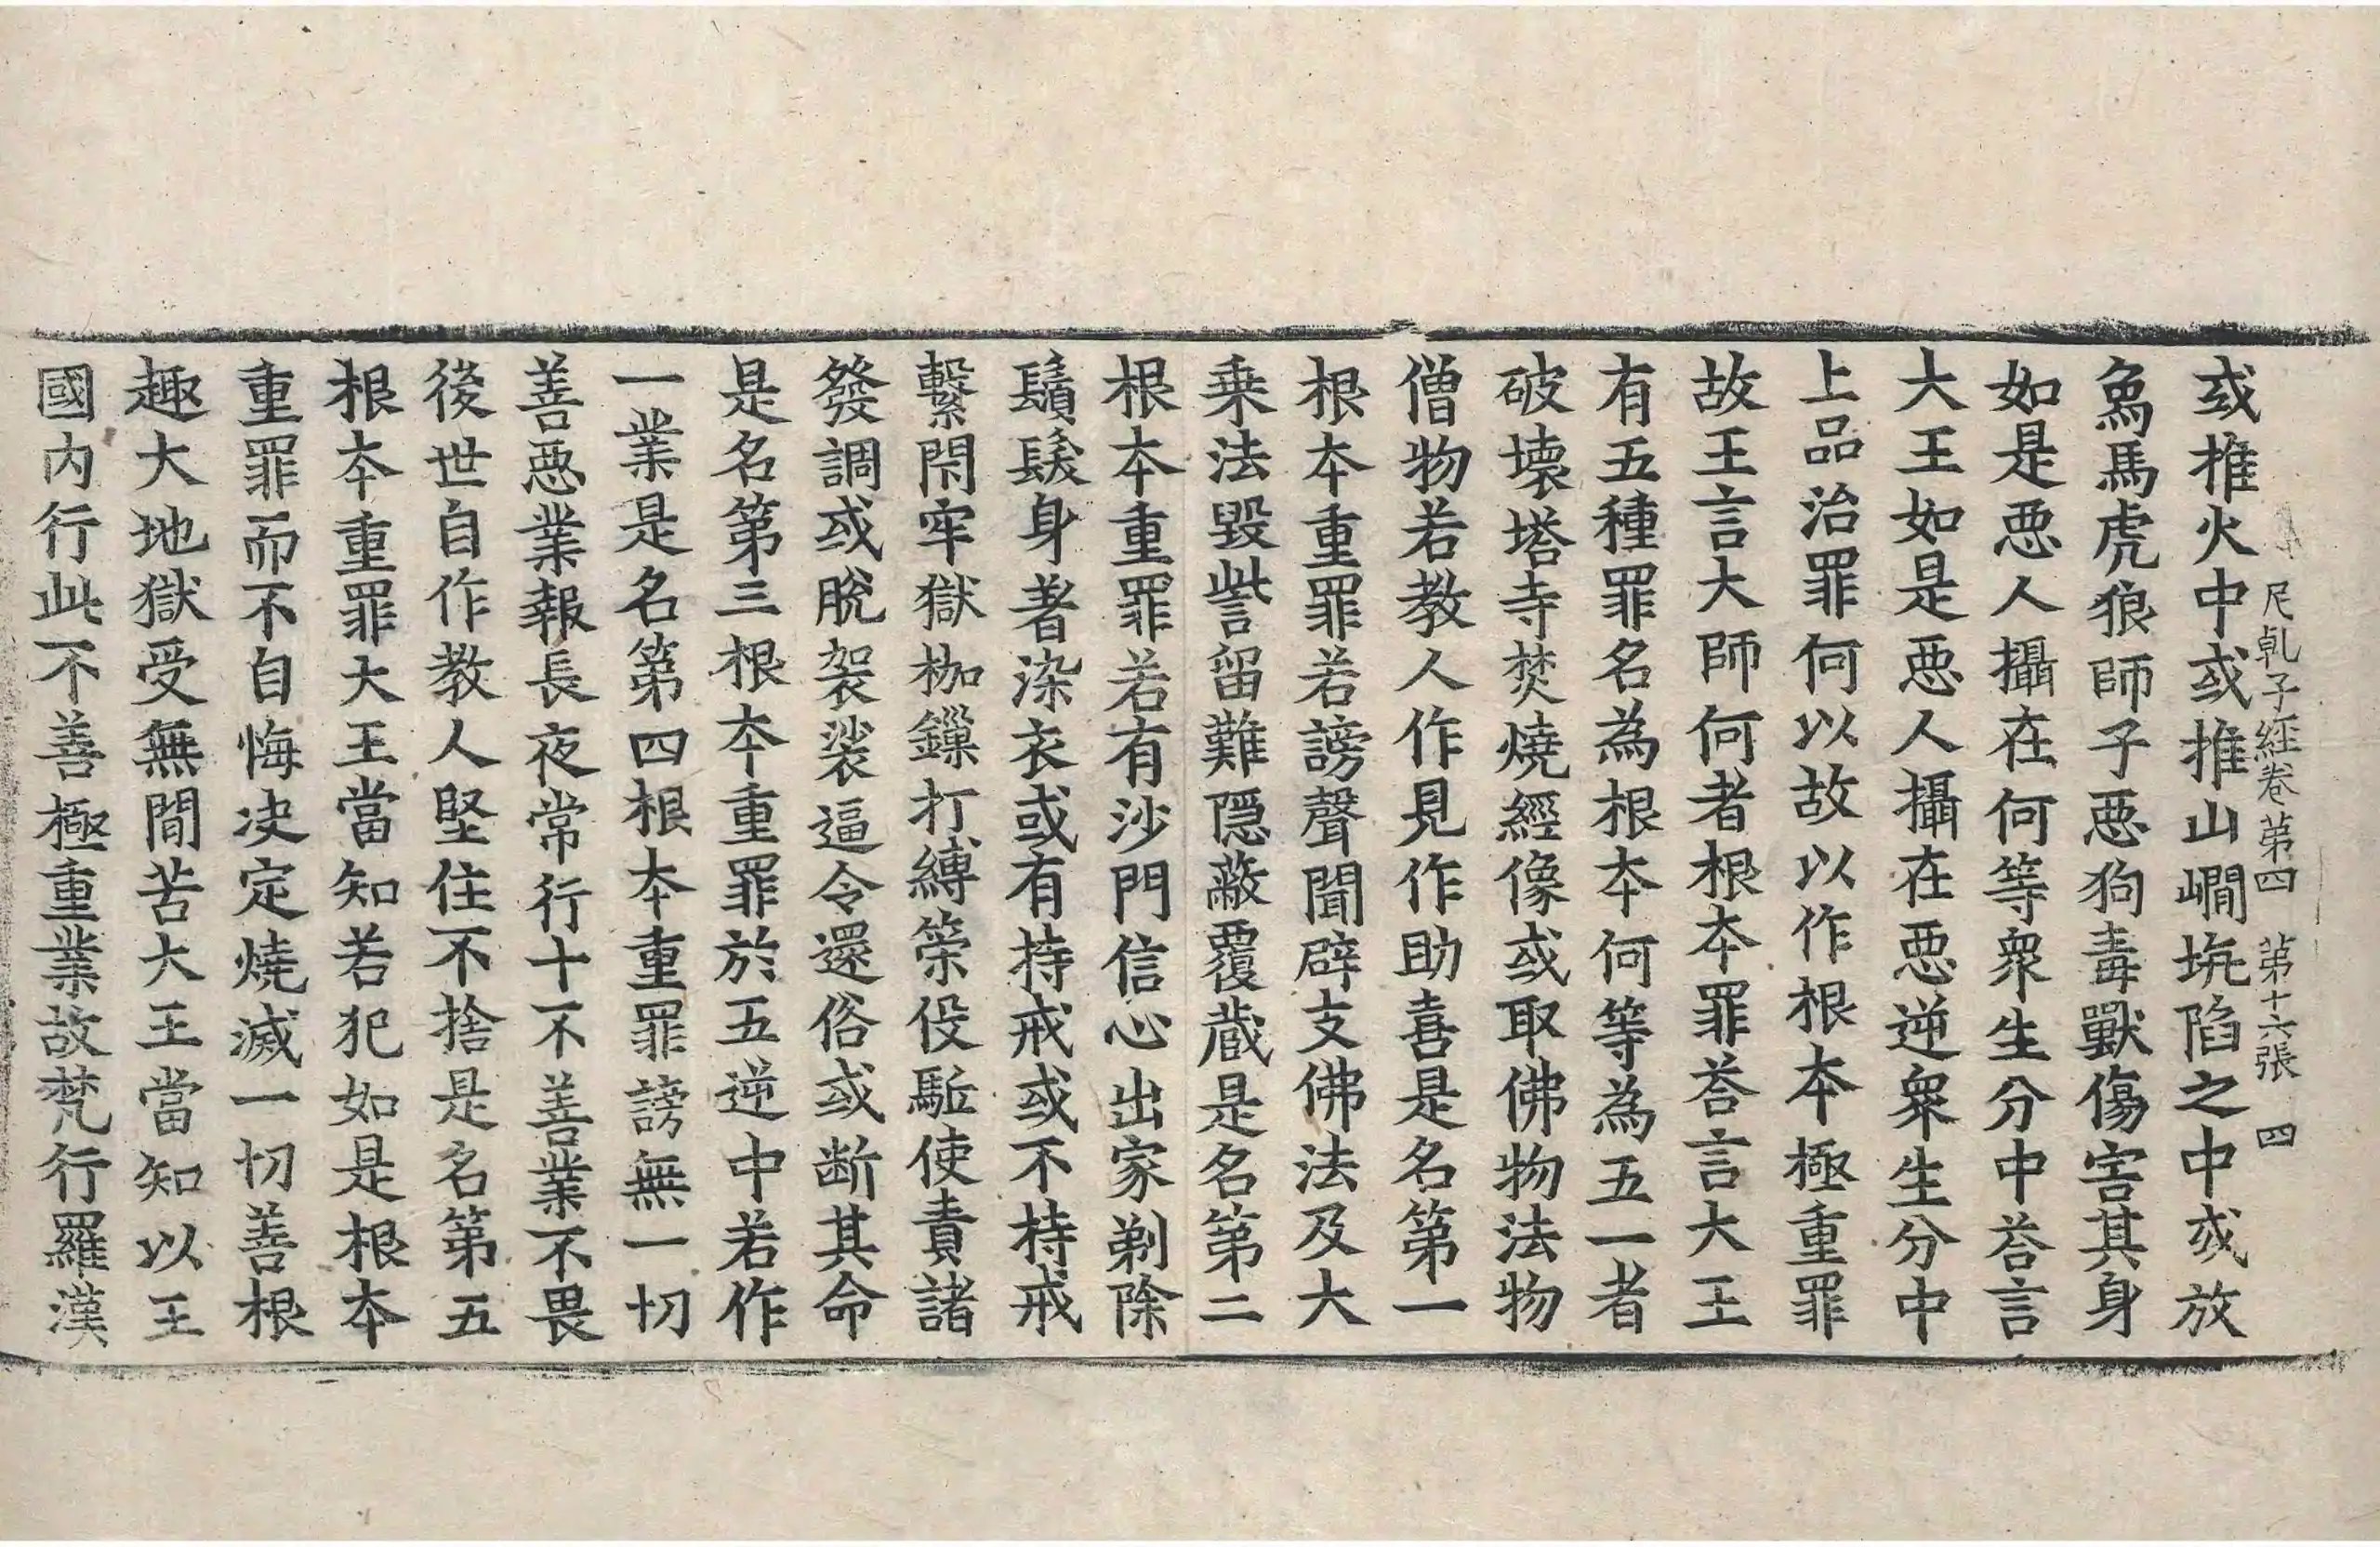 尼乹子経卷第四　第十六張　四
或推火中或推山㵎坑陷之中或放
𤉢馬虎狼師子惡狗毒獸傷害其身
如是惡人攝在何等衆生分中荅言
大王如是惡人攝在惡逆衆生分中
上品治罪何以故以作根本極重罪
故王言大師何者根本罪荅言大王
有五種罪名為根本何等為五一者
破壞塔寺焚燒經像或取佛物法物
僧物若教人作見作助喜是名第一
根本重罪若謗聲聞辟支佛法及大
乗法毀訾留難隱蔽覆蔵是名第二
根本重罪若有沙門信心出家剃除
鬚髮身著染衣或有持戒或不持戒
繫閇牢獄枷鏁打縛策役駈使責諸
發調或脫袈裟逼令還俗或断其命
是名第三根本重罪於五逆中若作
一業是名第四根本重罪謗無一切
善惡業報長夜常行十不善業不畏
後世自作教人堅住不捨是名第五
根本重罪大王當知若犯如是根本
重罪而不自悔決定燒滅一切善根
趣大地獄受無間苦大王當知以王
國内行此不善極重業故梵行羅漢